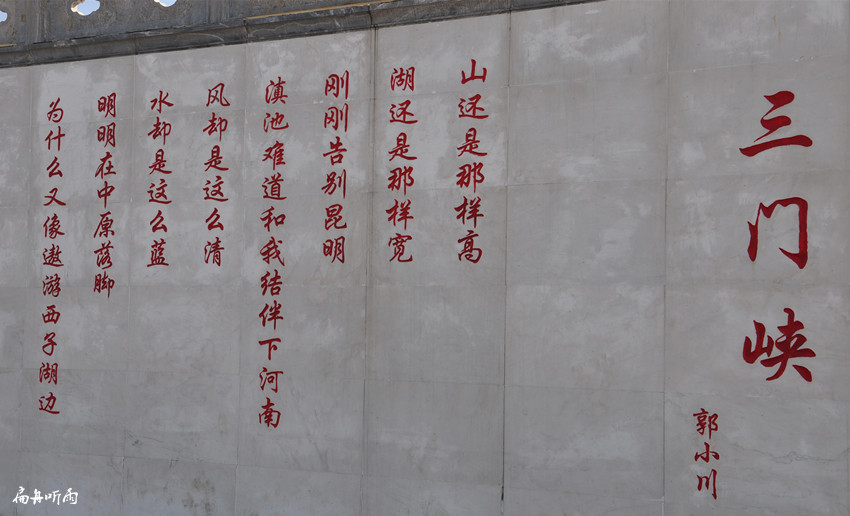 三门峡
郭小川
山还是那样高
湖还是那样宽
刚刚告别昆明
滇池难道和我结伴下河南
风却是这么清
水却是这么蓝
明明在中原落脚
为什么又像遨游西子湖边
扁舟听雨